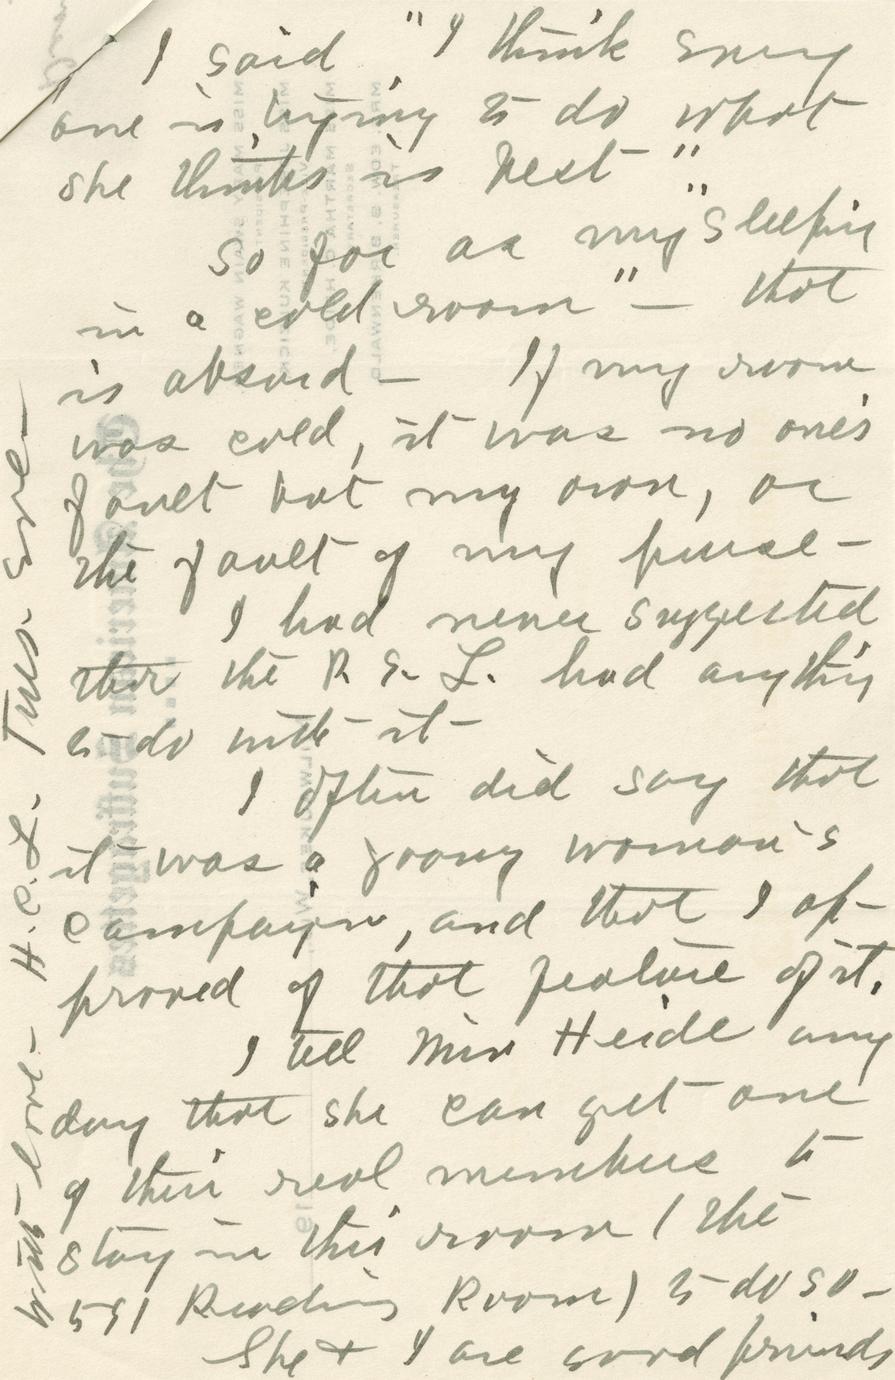 I said "I think every
one is trying to do what
she thinks is best"
So far as my "sleeping
in a cold room" — that
is absurd — If my room
was cold, it was no one's
fault but my own, or
the fault of my purse —
I had never suggested
that the P. E. L. had anything
to do with it —
I often did say that
it was a young woman's
campaign, and that I ap-
proved of that feature of it.
I tell Miss Heide any
day that she can get one
of their real members to
stay in this room (the
Reading Room) to do so —
She + I are good friends
With love — H. C. L. Tues. eve —
The American Suffragettes
MISS MARY SWAIN WAGNER
MISS MARTHA HEIDE